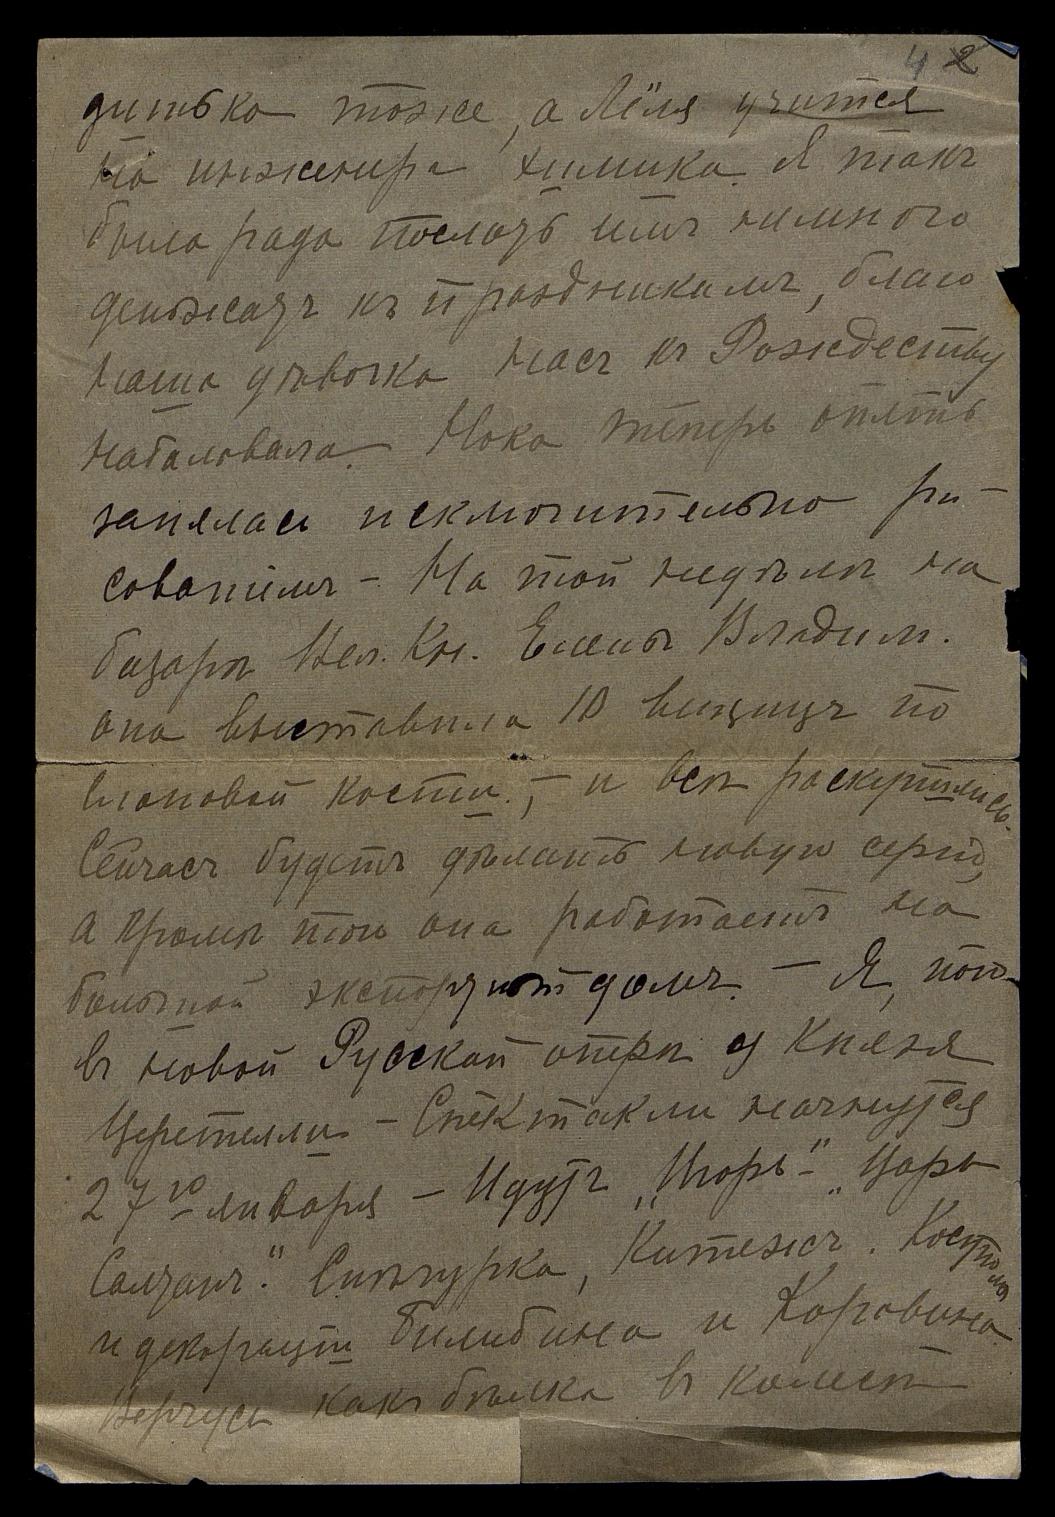 4 2
дитъка тоже, а Лёля учится
на инженера химика. Я такъ
была рада послать имъ немного
деньжатъ къ праздникамъ, благо
наша дѣвочка насъ къ Рождеству
набаловала. Нока теперь опять
занялась исключительно ри-
сованіемъ – На той недѣлѣ на
базарѣ Вел. Кн. Елены Владим.
она выставила 10 вещицъ по
слоновой кости, – и всѣ раскупились.
Сейчасъ будетъ дѣлать новую серію,
а кромѣ того она работаетъ на
большой экспортный домъ. – Я, пою
въ новой Русской оперѣ у Князя
Церетелли – Спектакли начнутся
27го января – Идутъ „Игорь" – „Царь
Салтанъ". Снѣгурка, Китежъ. Костюмы
и декораціи Билибина и Коровина
Верчусь какъ бѣлка въ колесѣ